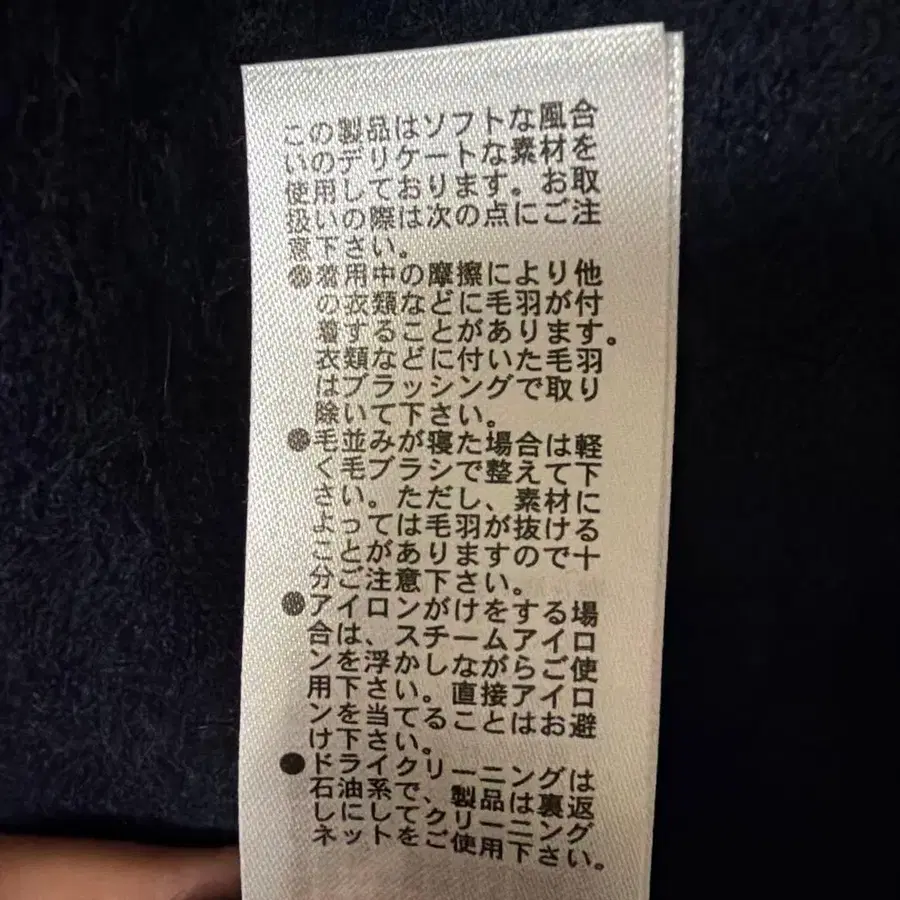 この製品はソフトな風合
いのデリケートな素材を
使用しております。お取
扱いの際は次の点にご注
意下さい。
●着用中の摩擦により他
の衣類などに毛羽が付
着することがあります。
衣類などに付いた毛羽
はブラッシングで取り
除いて下さい。
●毛並みが寝た場合は軽
く毛ブラシで整えて下
さい。ただし、素材に
よっては毛羽が抜ける
ことがありますので十
分ご注意下さい。
●アイロンがけをする場
合は、スチームアイロ
ンを浮かしながらご使
用下さい。直接アイロ
ンを当てることはお避
け下さい。
●ドライクリーニングは
石油系で、製品は裏返
しにしてクリーニング
ネットをご使用下さい。